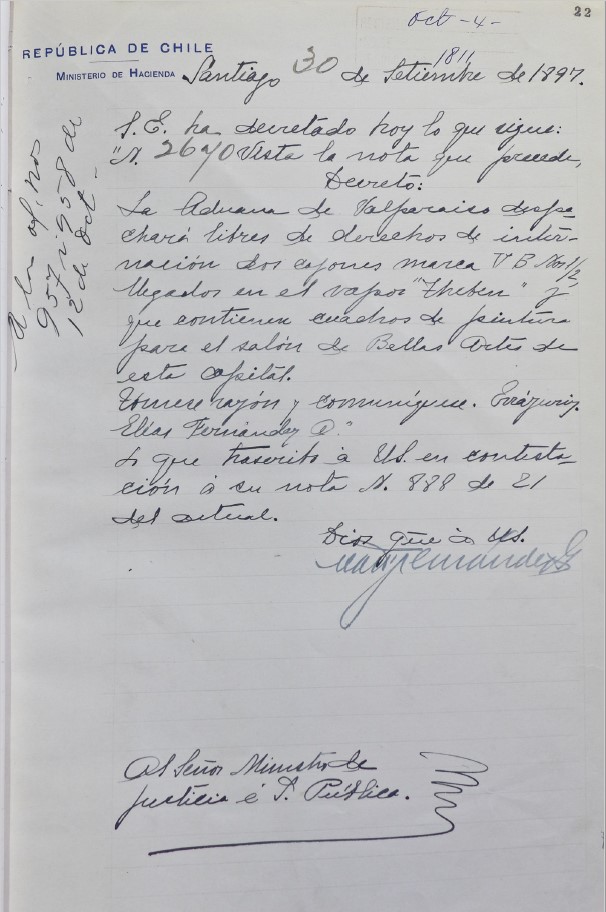 22
Oct - 4 -
REPÚBLICA DE CHILE
MINISTERIO DE HACIENDA
1811
Santiago 30 de Setiembre de 1897.
S. E. ha decretado hoy lo que sigue:
"N. 2670 Vista la nota que precede,
Decreto:
La Aduana de Valparaiso despa-
chará libres de derechos de inter-
nación dos cajones marca V B Nos 1/2,
llegados en el vapor "Theben" y
que contienen cuadros de pintura
para el salón de Bellas Artes de
esta capital.
Tómese razón y comuníquese. Errázuriz.
Elías Fernández A."
Lo que trascribo á US. en contesta-
ción á su nota N. 888 de 21
del actual.
Dios gue á US.
Elías Fernández A
Al Señor Ministro de
Justicia é I. Pública.
of. Nos
957 i 958 de
12 de Oct -